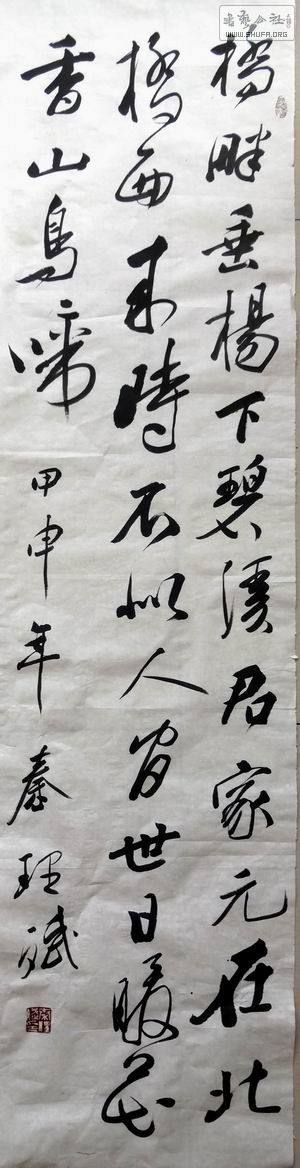 書藝公社
WWW.SHUFA.ORG
橋畔垂楊下碧溪君家元在北
橋西来時不似人間世日暖花
香山鳥啼
甲申年 秦理斌